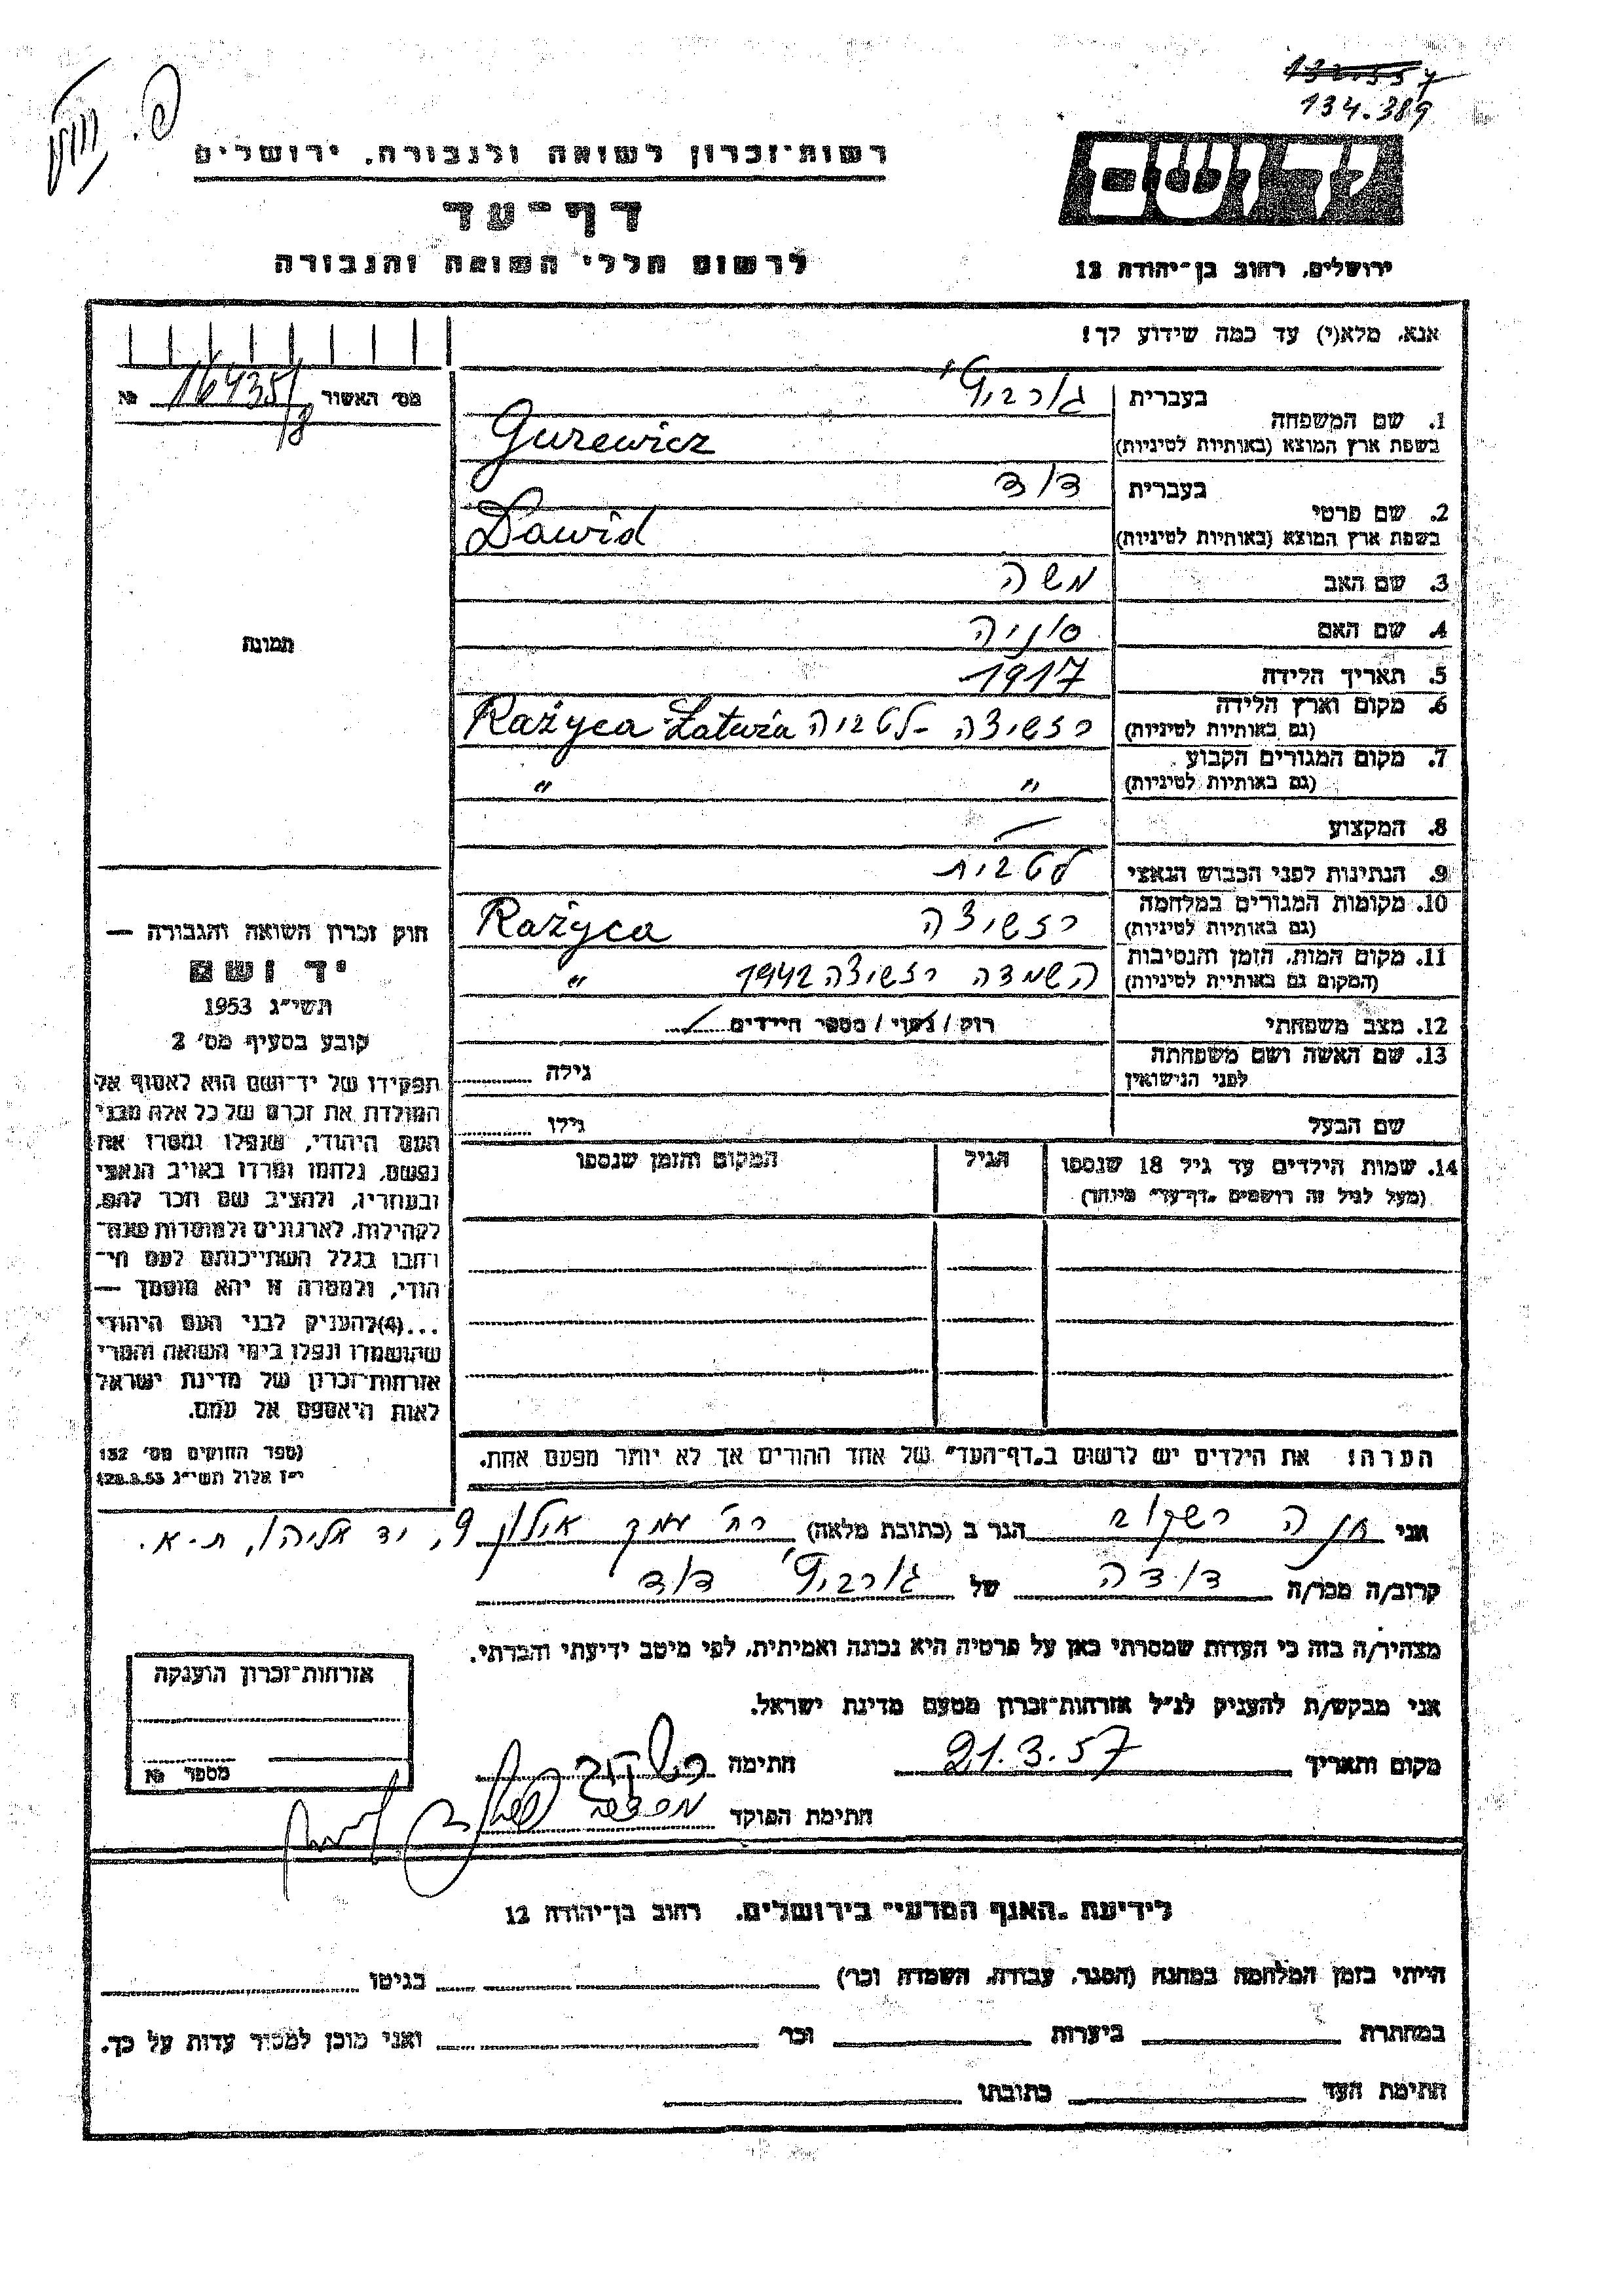 132.557
134.389
יד ושם
רשות־זכרון לשואה ולגבורה, ירושלים
דף־עד
לרשום חללי השואה והגבורה
ירושלים, רחוב בן־יהודה 12
אנא, מלא(י) עד כמה שידוע לך!
מס׳ האשור 16435/8 №
1. שם המשפחה
בעברית גורביץ'
בשפת ארץ המוצא (באותיות לטיניות) Gurewicz
2. שם פרטי
בעברית דוד
בשפת ארץ המוצא (באותיות לטיניות) Dawid
3. שם האב משה
4. שם האם סוניה
5. תאריך הלידה 1917
6. מקום וארץ הלידה
(גם באותיות לטיניות) רזשיצה - לטביה Rażyca - Łatwia
7. מקום המגורים הקבוע
(גם באותיות לטיניות) " "
8. המקצוע —
9. הנתינות לפני הכבוש הנאצי לטבית
10. מקומות המגורים במלחמה
(גם באותיות לטיניות) רזשיצה Rażyca
11. מקום המות, הזמן והנסיבות
(המקום גם באותיות לטיניות) השמדה רזשיצה 1942 "
12. מצב משפחתי רוק / נשוי / מספר הילדים
13. שם האשה ושם משפחתה
לפני הנישואין גילה
שם הבעל גילו
14. שמות הילדים עד גיל 18 שנספו הגיל המקום והזמן שנספו
(מעל לגיל זה רושמים „דף־עד״ מיוחד)
תמונה
חוק זכרון השואה והגבורה —
יד ושם
תשי״ג 1953
קובע בסעיף מס׳ 2
תפקידו של יד־ושם הוא לאסוף אל
המולדת את זכרם של כל אלה מבני
העם היהודי, שנפלו ומסרו את
נפשם, נלחמו ומרדו באויב הנאצי
ובעוזריו, ולהציב שם וזכר להם,
לקהילות, לארגונים ולמוסדות שנח־
רבו בגלל השתייכותם לעם הי־
הודי, ולמטרה זו יהא מוסמך —
...(4)להעניק לבני העם היהודי
שהושמדו ונפלו בימי השואה והמרי
אזרחות־זכרון של מדינת ישראל
לאות היאספם אל עמם.
(ספר החוקים מס׳ 132
י״ז אלול תשי״ג 28.8.53)
הערה! את הילדים יש לרשום ב„דף־העד״ של אחד ההורים אך לא יותר מפעם אחת.
אני חנה רשקוב הגר ב (כתובת מלאה) רח' עמק אילון 9, יד אליהו, ת.א.
קרוב/ה מכר/ה דודה של גורביץ' דוד
מצהיר/ה בזה כי העדות שמסרתי כאן על פרטיה היא נכונה ואמיתית, לפי מיטב ידיעתי והכרתי.
אני מבקש/ת להעניק לנ״ל אזרחות־זכרון מטעם מדינת ישראל.
מקום ותאריך 21.3.57 חתימה רשקוב
חתימת הפוקד
אזרחות־זכרון הוענקה
מספר №
לידיעת „האגף המדעי״ בירושלים, רחוב בן־יהודה 12
הייתי בזמן המלחמה במחנה (הסגר, עבודה, השמדה וכו׳) בגיטו
במחתרת ביערות וכו׳ ואני מוכן למסור עדות על כך.
חתימת העד כתובתו